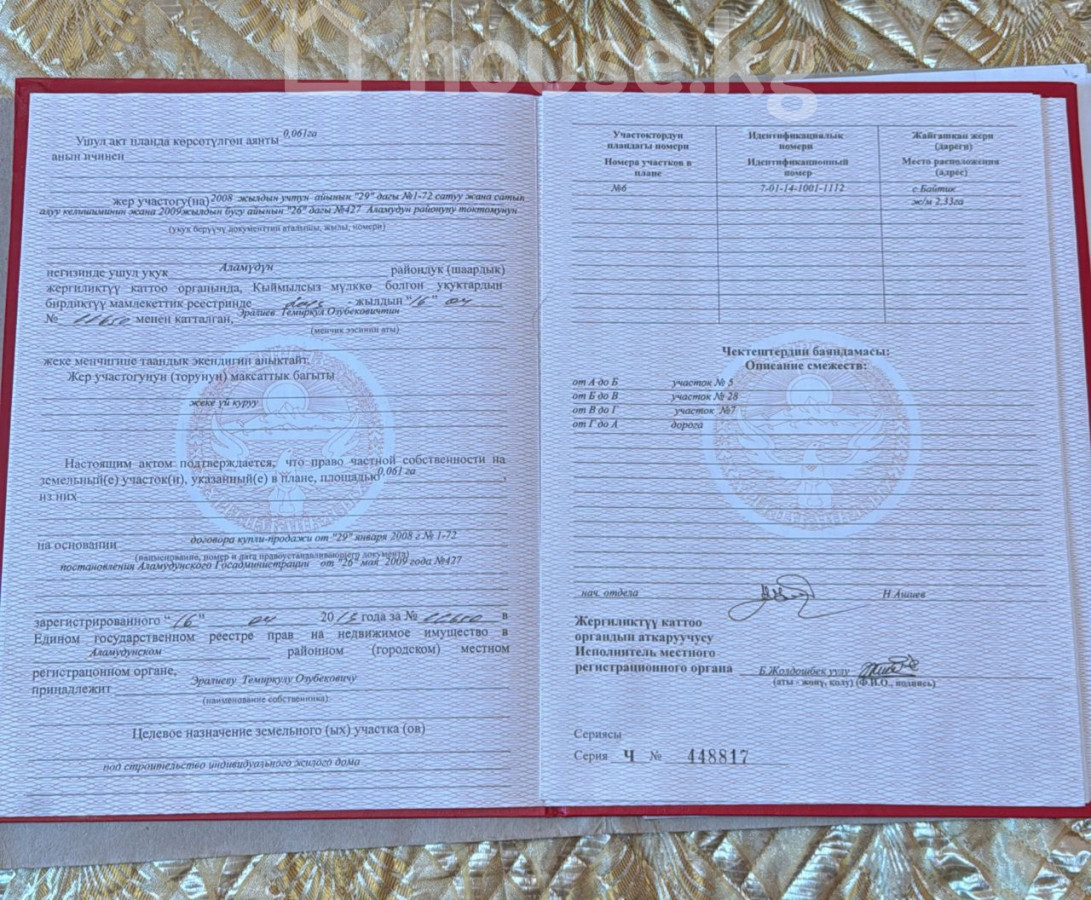 house.kg
Ушул акт планда көрсөтүлгөн аянты 0,061га
анын ичинен
жер участогу(на) 2008 жылдын үчтүн айынын "29" дагы №1-72 сатуу жана сатып
алуу келишиминин жана 2009жылдын бугу айынын "26" дагы №427 Аламудун районуну токтомунун
(укук берүүчү документтин аталышы, жылы, номери)
негизинде ушул укук Аламүдүн райондук (шаардык)
жергиликтүү каттоо органында, Кыймылсыз мүлккө болгон укуктардын
бирдиктүү мамлекеттик реестринде - жылдын "16" 04
№ менен катталган, Эралиев Темиркул Озубековичтин
(менчик ээсинин аты)
жеке менчигине таандык экендигин аныктайт.
Жер участогунун (торунун) максаттык багыты
жеке үй куруу
Настоящим актом подтверждается, что право частной собственности на
земельный(е) участок(и), указанный(е) в плане, площадью 0,061 га ,
из них
на основании договора купли-продажи от "29" января 2008 г.№ 1-72
(наименование, номер и дата правоустанавливающего документа)
постановления Аламудунского Госадминистрации от "26" мая 2009 года №427
зарегистрированного "16" 04 20 года за № в
Едином государственном реестре прав на недвижимое имущество в
Аламудунском районном (городском) местном
регистрационном органе,
принадлежит Эралиеву Темиркулу Озубековичу
(наименование собственника)
Целевое назначение земельного (ых) участка (ов)
под строительство индивидуального жилого дома
Участоктордун пландагы номери Идентификациялык номери Жайгашкан жери (дареги)
Номера участков в плане Идентификационный номер Место расположения (адрес)
№6 7-01-14-1001-1112 с.Байтик
ж/м 2,33га
Чектештердин баяндамасы:
Описание смежеств:
от А до Б участок № 5
от Б до В участок № 28
от В до Г участок №7
от Г до А дорога
нач. отдела Н.Ашиев
Жергиликтүү каттоо
органдын аткаруучусу
Исполнитель местного
регистрационного органа Б.Жолдошбек уулу
(аты - жөнү, колу) (Ф.И.О., подпись)
Сериясы
Серия Ч № 448817